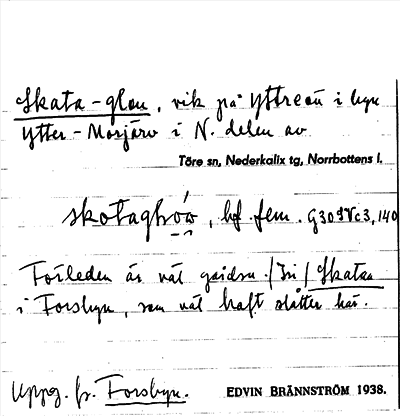 Skata-glan, vik på Yttreån i byn
Ytter-Morjärv i N. delen av
Töre sn, Nederkalix tg, Norrbottens l.
bf. fem. G30SVc3,140
Förleden är väl gården /In/ Skatan
i Forsbyn, som väl haft slåtter här.
Uppg. fr. Forsbyn.
EDVIN BRÄNNSTRÖM 1938.